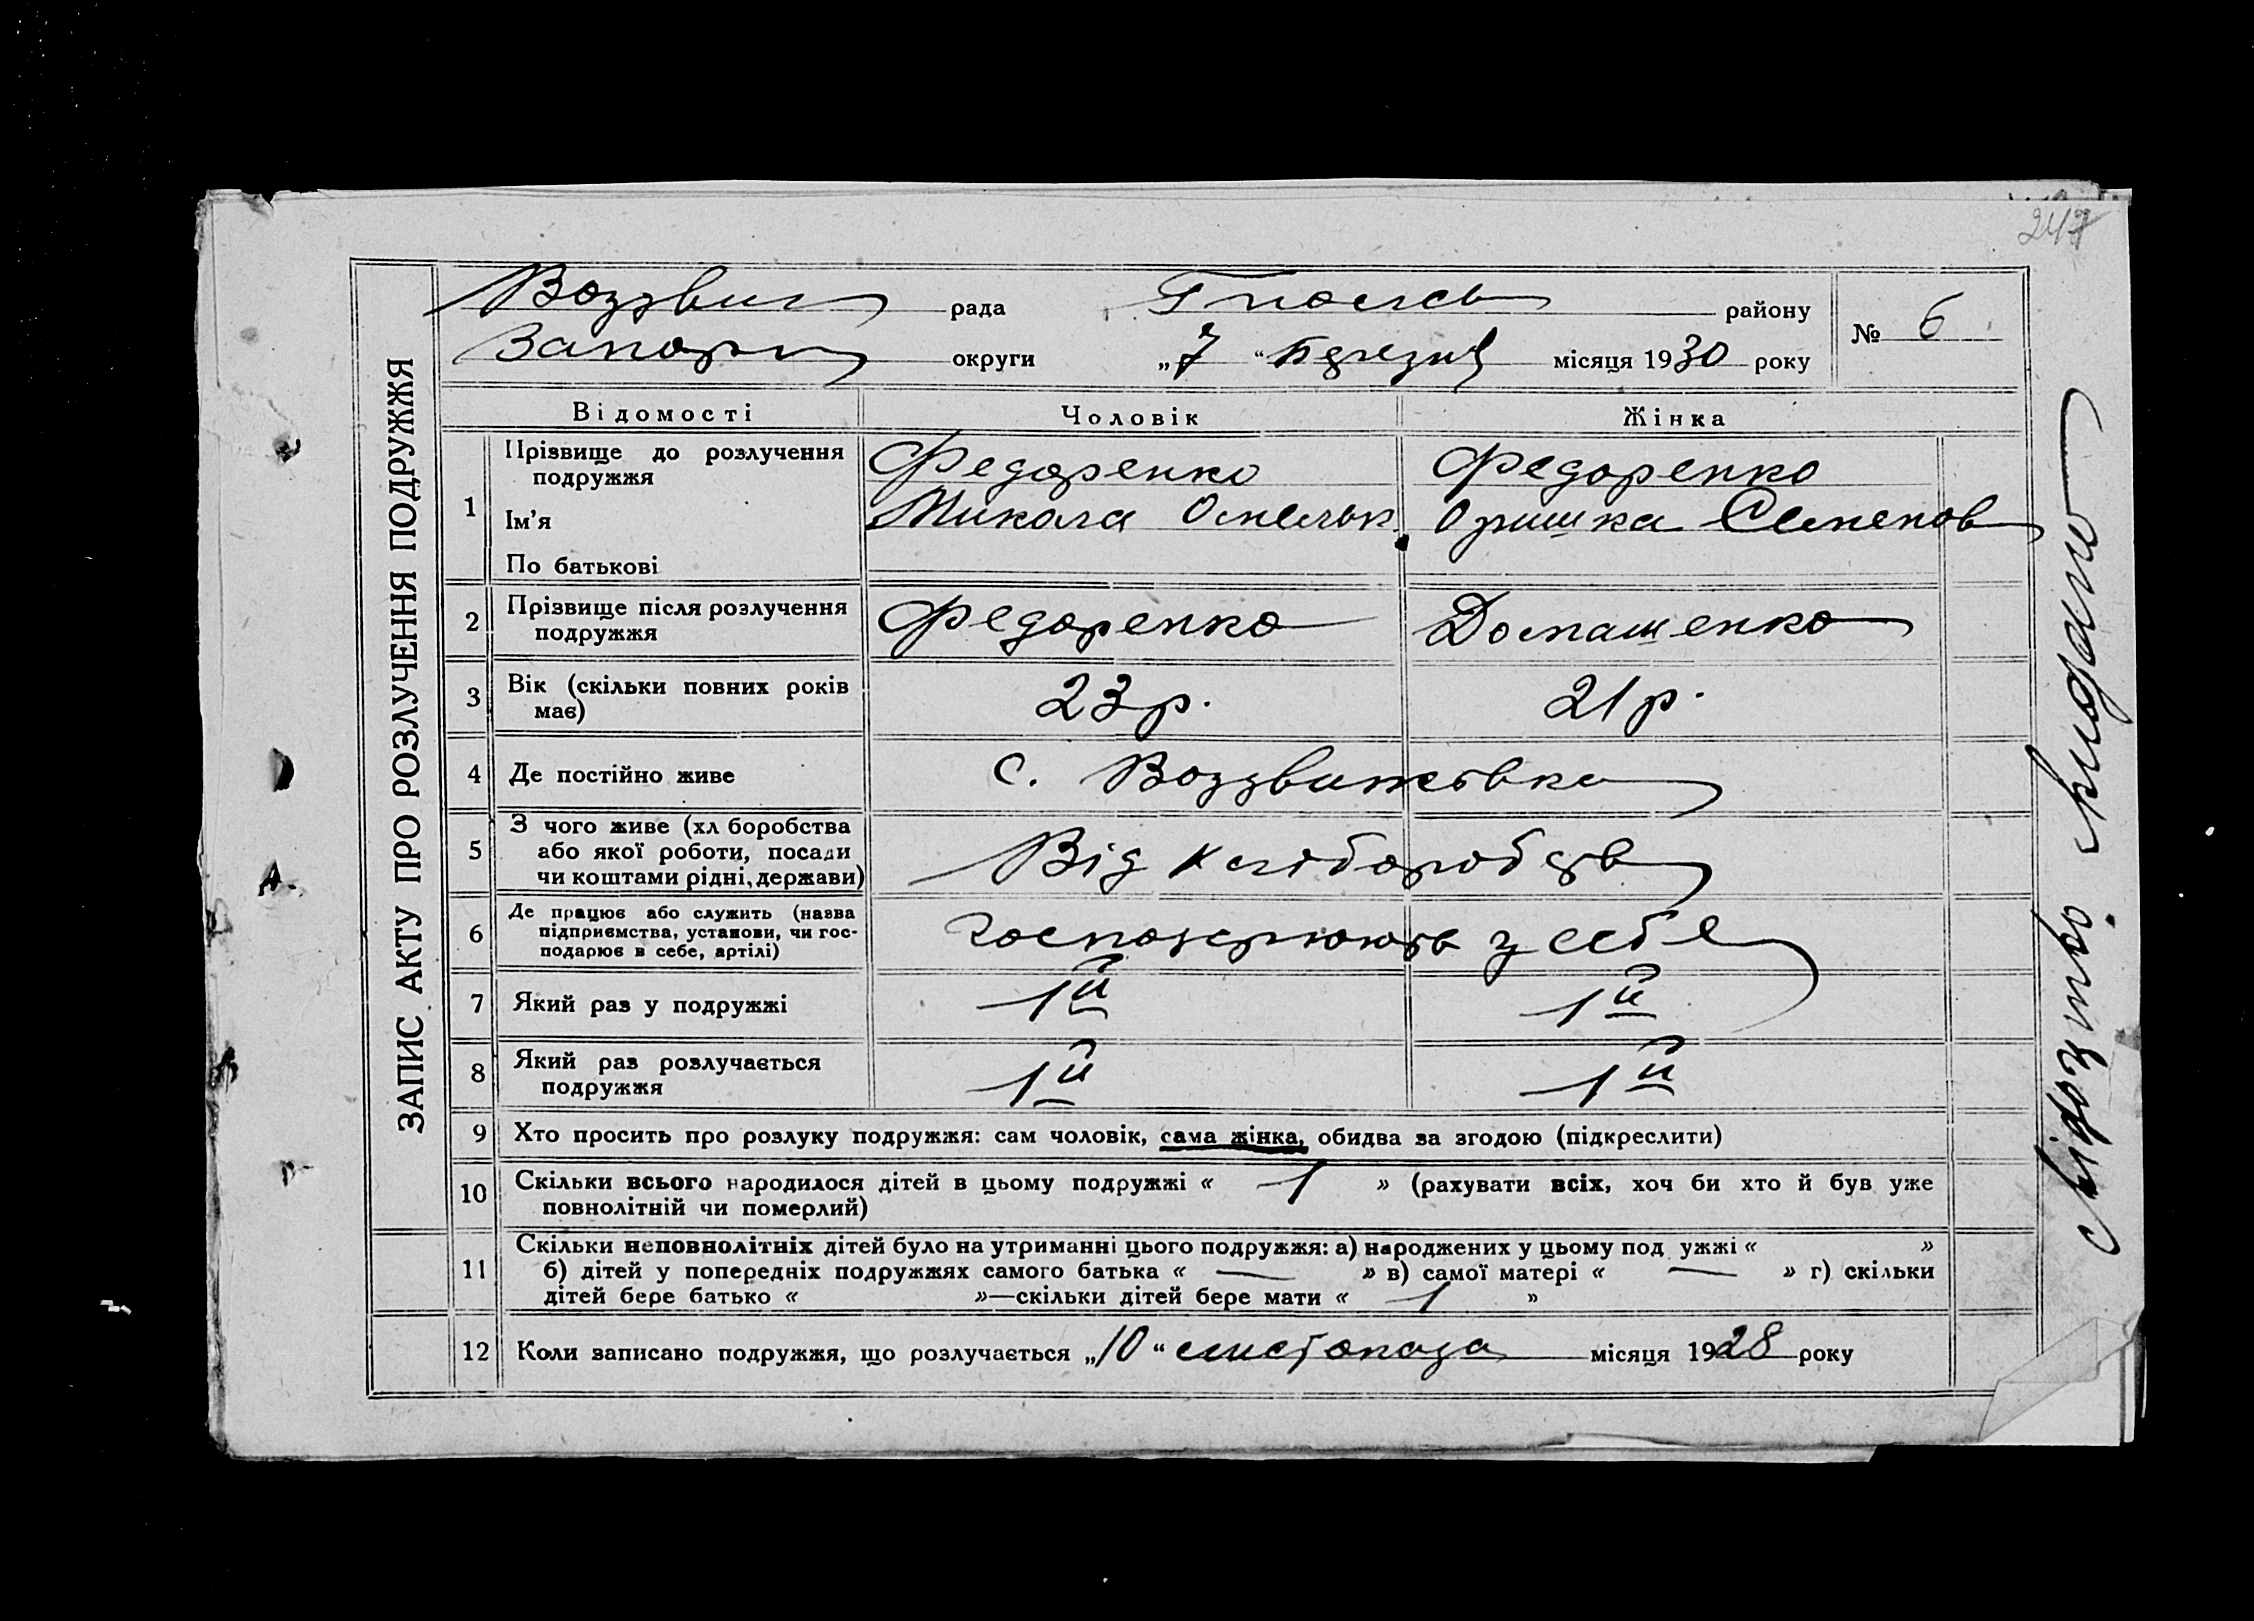 247
ЗАПИС АКТУ ПРО РОЗЛУЧЕННЯ ПОДРУЖЖЯ
Воздвиж рада района району № 6
Запоріз округи „7“ Березня місяця 1930 року
Відомості Чоловік Жінка
1 Прізвище до розлучення подружжя Федоренко Федоренко
Ім'я Микола Омельк. Оришка Семенов
По батькові
2 Прізвище після розлучення подружжя Федоренко Домашенко
3 Вік (скільки повних років має) 23 р. 21 р.
4 Де постійно живе с. Воздвижевка
5 З чого живе (хл боробства або якої роботи, посади чи коштами рідні, держави) Від хліборобств
6 Де працює або служить (назва підприємства, установи, чи господарює в себе, артілі) господарюють у себе
7 Який раз у подружжі 1й 1й
8 Який раз розлучається подружжя 1й 1й
9 Хто просить про розлуку подружжя: сам чоловік, сама жінка, обидва за згодою (підкреслити)
10 Скільки всього народилося дітей в цьому подружжі « 1 » (рахувати всіх, хоч би хто й був уже
повнолітній чи померлий)
11 Скільки неповнолітніх дітей було на утриманні цього подружжя: а) народжених у цьому под ужжі « »
б) дітей у попередніх подружжях самого батька « — » в) самої матері « — » г) скільки
дітей бере батько « »—скільки дітей бере мати « 1 »
12 Коли записано подружжя, що розлучається „10“ листопада місяця 1928 року
видано